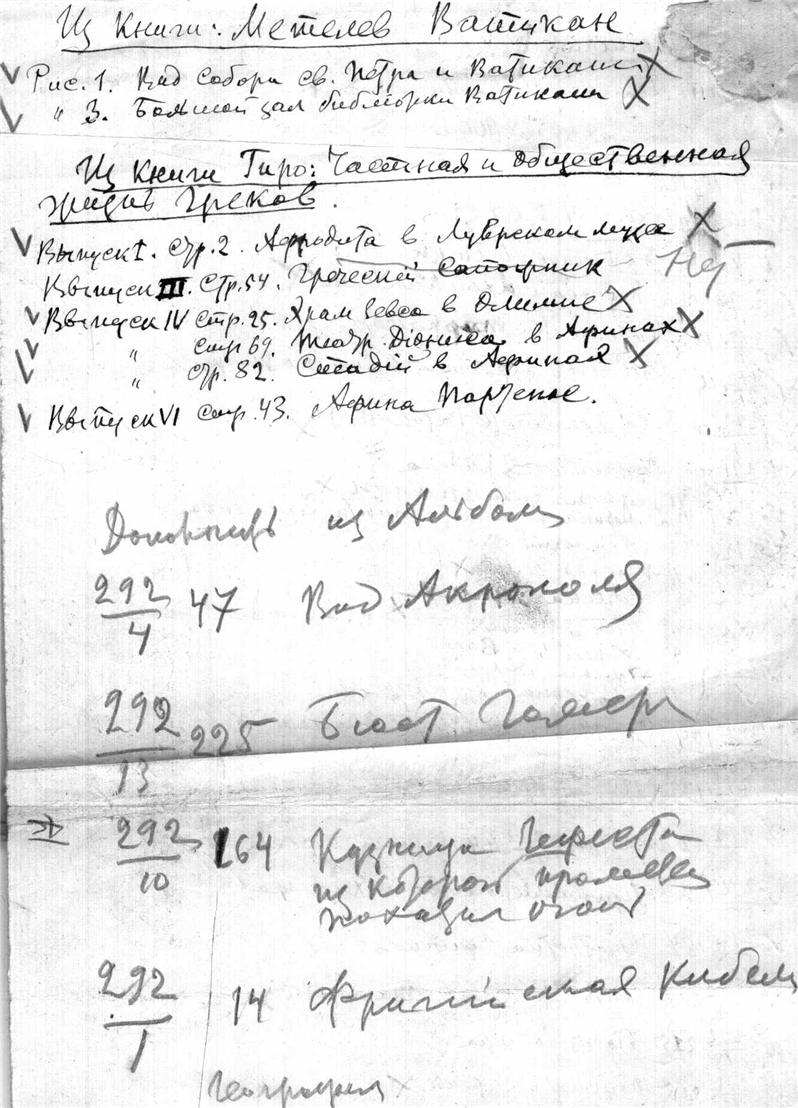 Из книги: Метелев Ватикан
Рис. 1. Вид Собора св. Петра и Ватикана X
" 3. Большой зал библиотеки Ватикана X
Из книги Гиро: Частная и общественная
жизнь греков.
Выпуск I. стр. 2. Афродита в Луврском музее X
Выпуск III. стр. 54. Греческий сапожник Нет
Выпуск IV стр. 25. Храм Зевса в Олимпе X
" стр 69. Театр Діониса в Афинах X
" стр. 82. Стадій в Афинах X
Выпуск VI стр. 43. Афина Парѳенос.
из Альбома
292/4 47 Вид Акрополя
292/13 225 Бюст Гомера
292/10 164 Кузница Гефеста
из которой прометей
похитил огонь
292/1 14 Фригийская Кибела
География